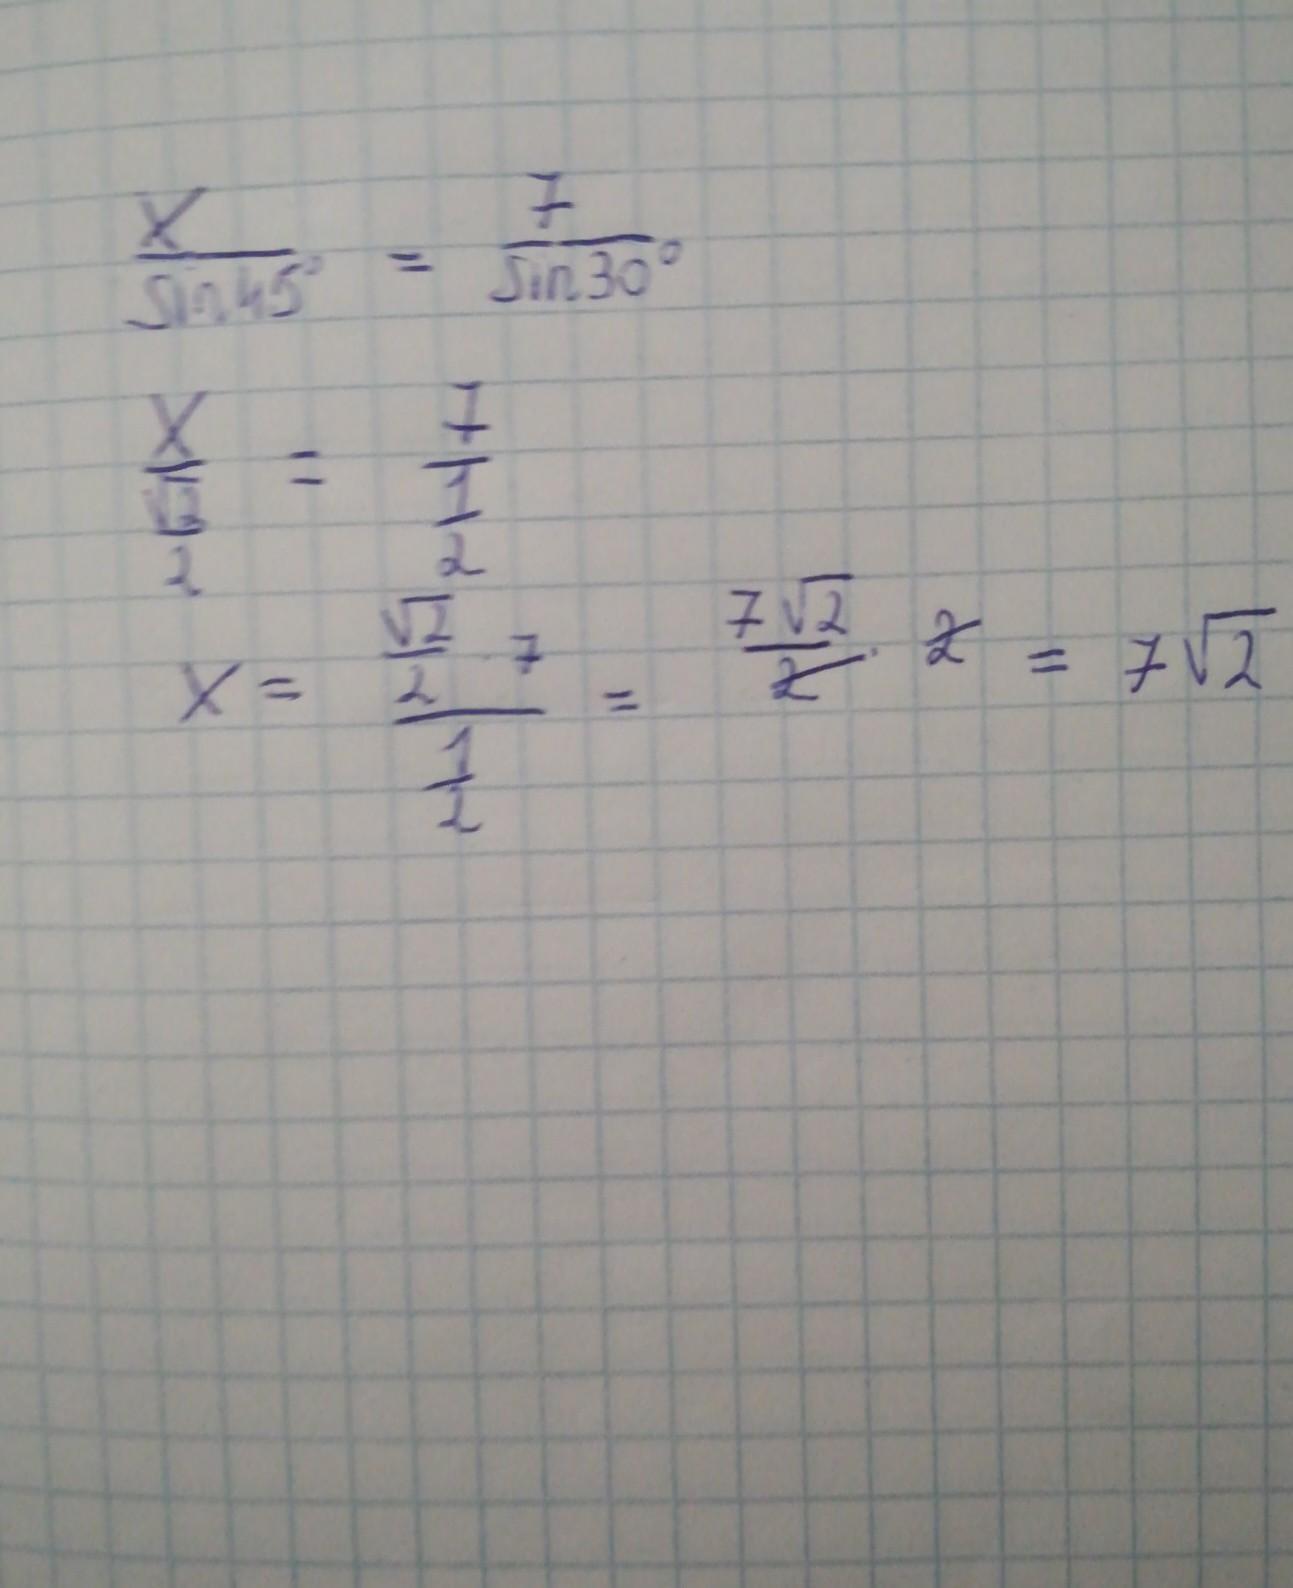 x/sin45° = 7/sin30°
x/(√2/2) = 7/(1/2)
x = (√2/2 · 7)/(1/2) = 7√2/2 · 2 = 7√2